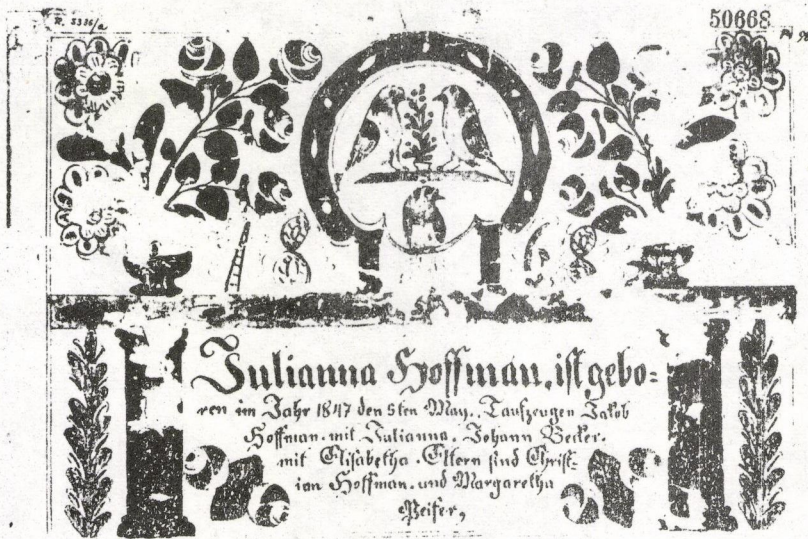 R. 3336/a
50668
Julianna Hoffman. ist gebo=
ren im Jahr 1847 den 5ten May. Taufzeugen Jakob
Hoffman. mit Julianna. Johann Becker.
mit Elisabetha. Eltern sind Christ=
ian Hoffman. und Margaretha
Peifer,